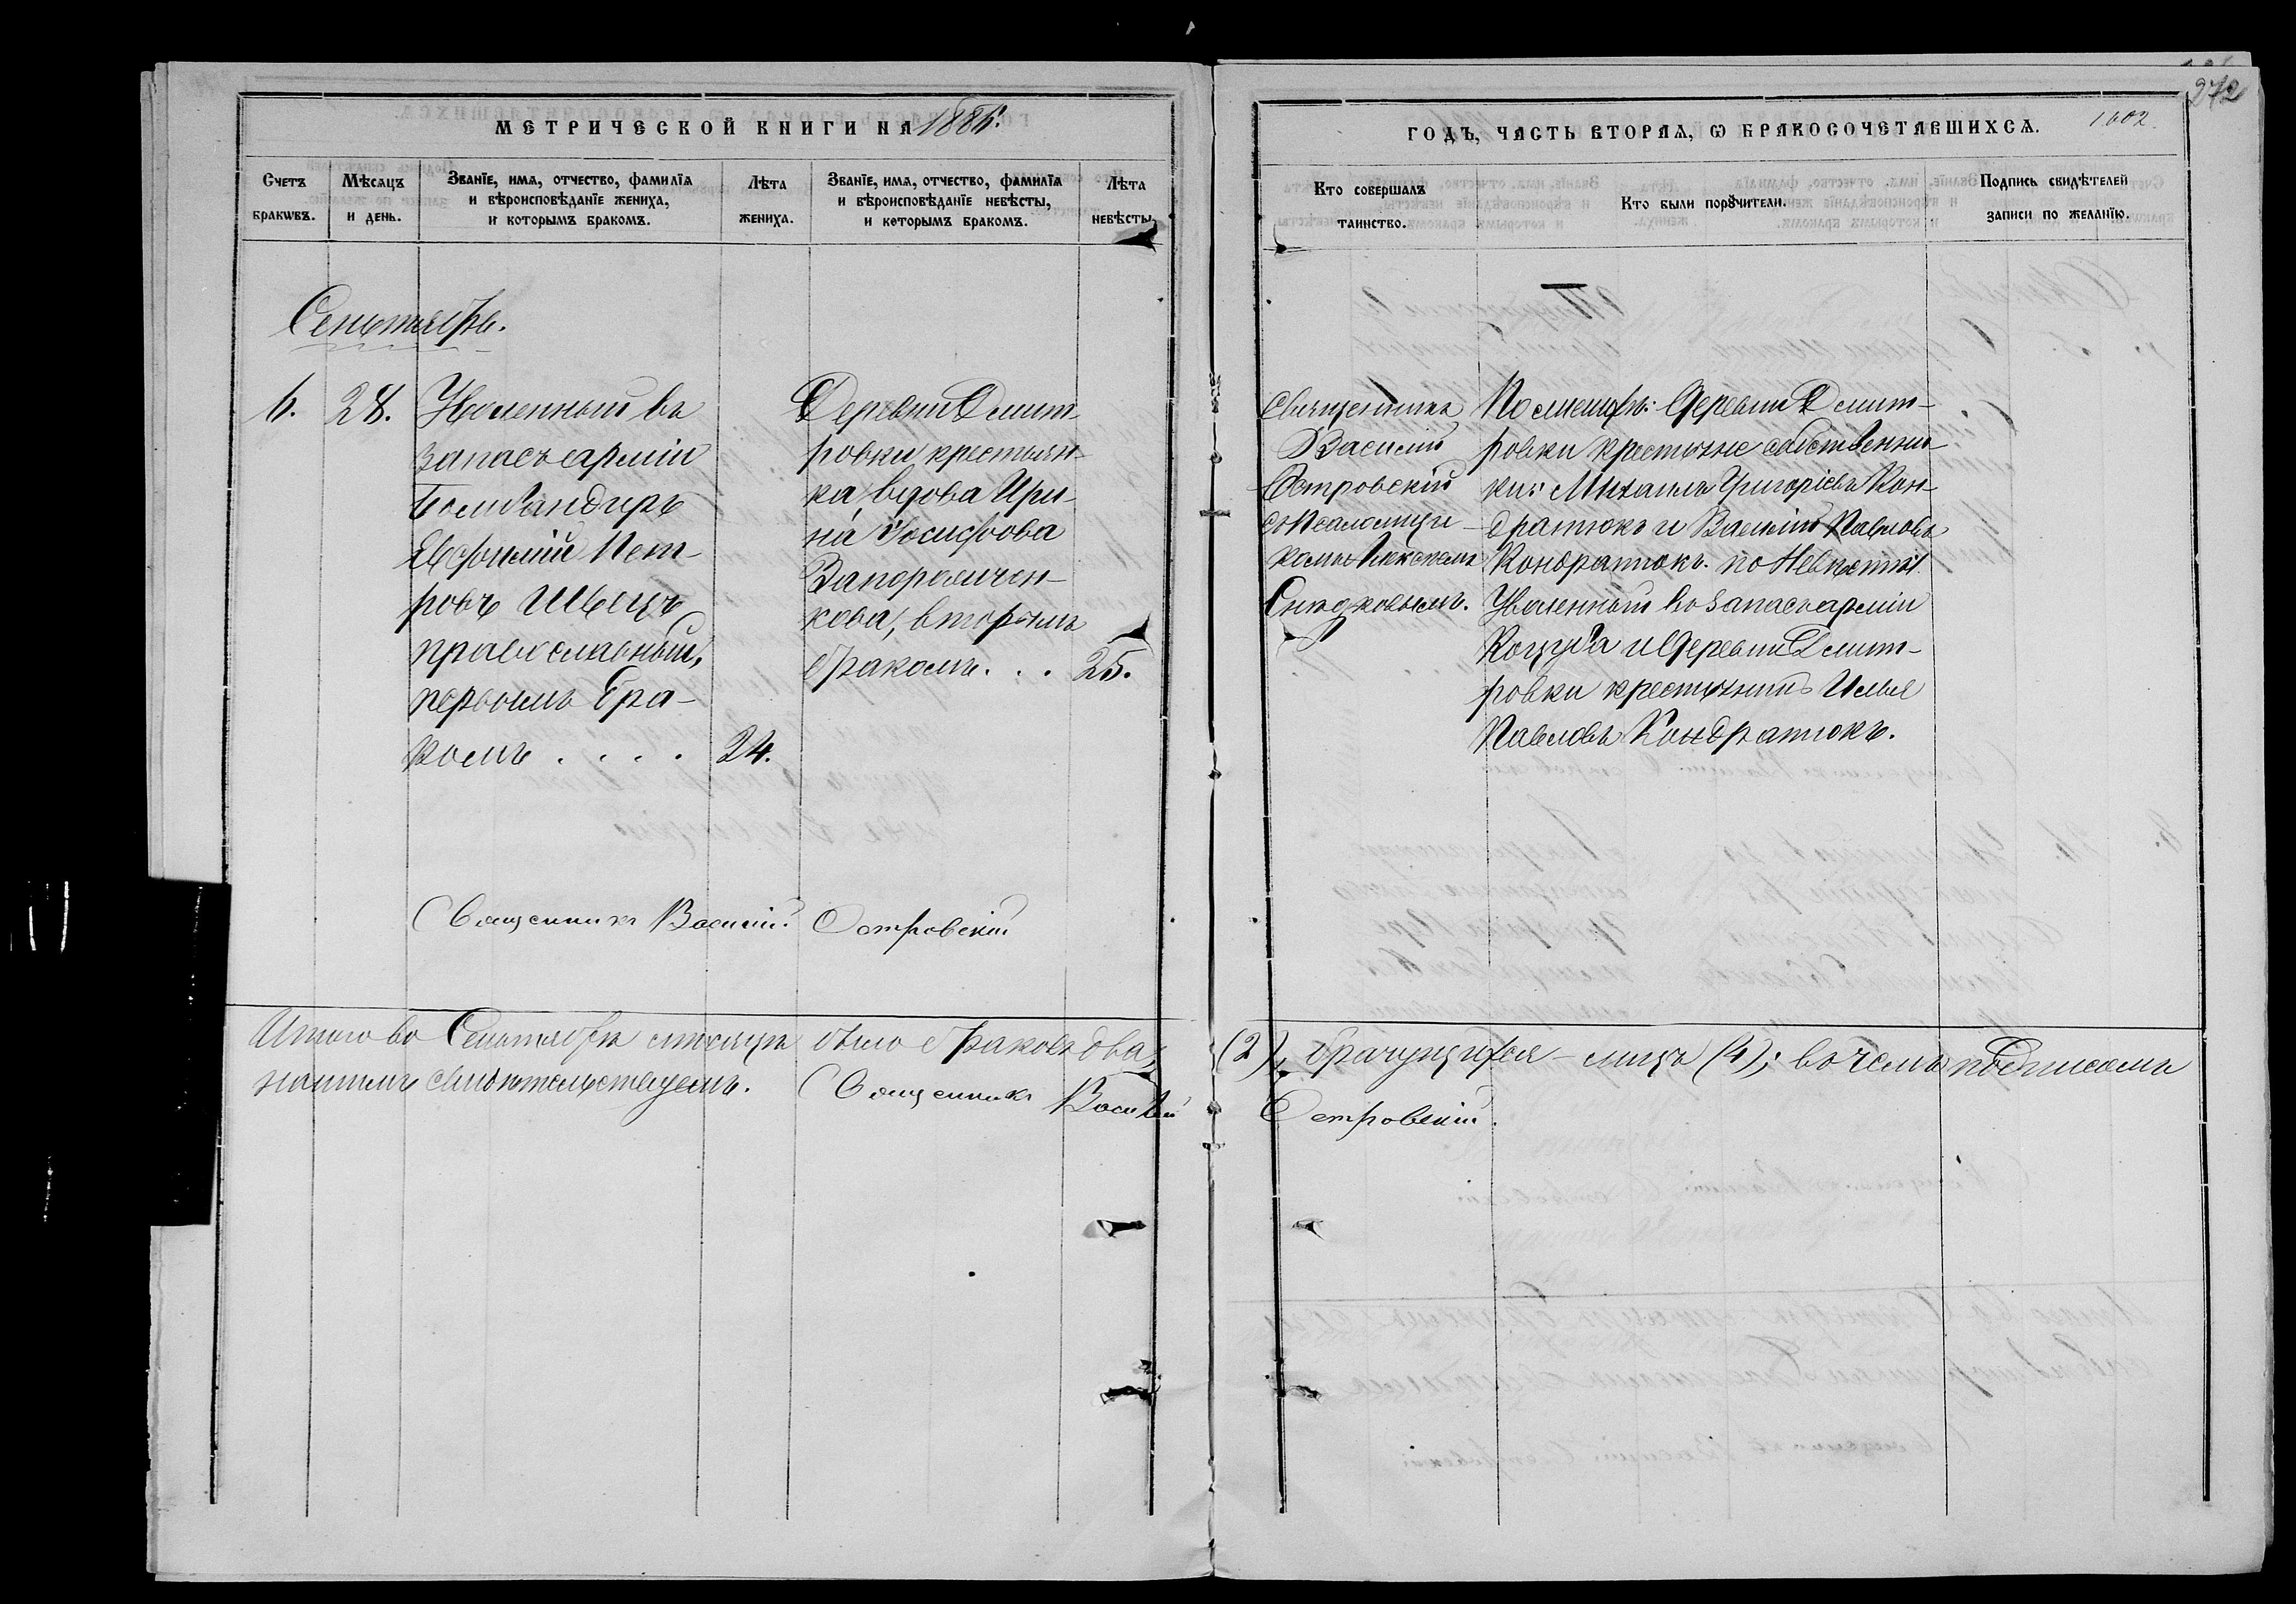 272
МЕТРИЧЕСКОЙ КНИГИ НА 1886.
ГОДЪ, ЧАСТЬ ВТОРАЯ, Ѡ БРАКОСОЧЕТАВШИХСѦ.
1602
Счетъ
бракѡвъ.
Мѣсяцъ
и день.
Званїе, имѧ, отчество, фамилїѧ
и вѣроисповѣданїе жениха,
и которымъ бракомъ.
Лѣта
жениха.
Званїе, имѧ, отчество, фамилїѧ
и вѣроисповѣданїе невѣсты,
и которымъ бракомъ.
Лѣта
невѣсты.
Кто совершалъ
таинство.
Кто были порꙋчители.
Подпись свидѣтелей
записи по желанїю.
Сентябрь.
6.
28.
Уволенный въ
запасъ арміи
Бомбандиръ
Евфимій Пет-
ровъ Швецъ
православный,
первымъ бра-
комъ . . . .
24.
Деревни Дмит
ровки крестьян-
ка, вдова Ири-
на Іосифова
Запорожчен-
кова, вторымъ
бракомъ. . .
25.
Священникъ
Василій
Островскій
съ Псаломщи-
комъ
По женихѣ: деревни Дмит-
ровки крестьяне собственни-
ки: Михаилъ Григоріевъ Кон-
дратюкъ и Василій Павловъ
Кондратюкъ. по Невѣстѣ:
Уволенный въ запасъ арміи
Коцуба и деревни Дмит-
ровки крестьянинъ Илья
Павловъ Кондратюкъ.
Священникъ Василій Островскій
Итого во Сентябрѣ мѣсяцѣ было браковъ два, (2), брачущихся - лицъ (4); въ чемъ подписомъ
нашимъ свидѣтельствуемъ. Священникъ Василій Островскій.